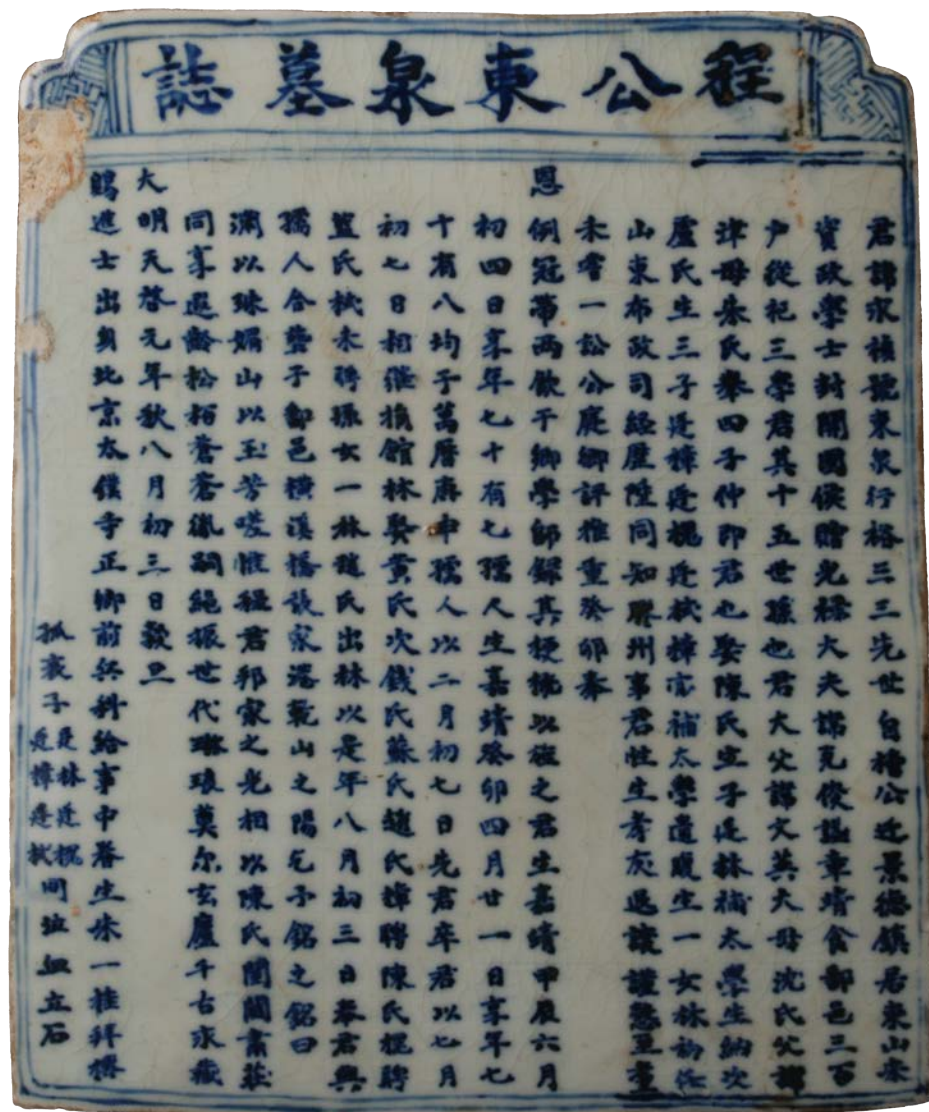 程公東泉墓誌
君諱永楨號東泉行裕三三先世自檜公迁景德鎮居東山柰
資政學士封開國侯贈光祿大夫諱克俊謚章靖食鄱邑三百
戶從祀三學君其十五世孫也君大父諱文英大母沈氏父諱
津母朱氏舉四子仲即君也娶陳氏宣子廷林補太學生納次
盧氏生三子廷樟廷槐廷栻樟官補太學遺腹生一女林初任
山東布政司經歷陞同知膠州事君性生孝友退讓謹愨亘童
未嘗一訟公庭鄉評推重癸卯奉
恩
例冠帶兩飲于鄉學師錄其梗槩以旌之君生嘉靖甲辰六月
初四日享年七十有七孺人生嘉靖癸卯四月廿一日享年七
十有八均于萬曆庚申孺人以二月初七日先君卒君以七月
初七日相繼捐館林娶黃氏次錢氏蘇氏趙氏樟聘陳氏槐聘
藍氏栻未聘孫女一林趙氏出林以是年八月初三日奉君與
孺人合塟于鄱邑橫溪橋敖家塢乾山之陽乞予銘之銘曰
淵以珠媚山以玉芳嗟惟程君邦家之光相以陳氏閨閫肅莊
同享遐齡松栢蒼蒼胤嗣繩振世代琳琅奠尔玄廬千古永藏
大
明天啓元年秋八月初三日穀旦
賜進士出身北京太僕寺正卿前兵科給事中眷生朱一桂拜撰
孤哀子廷林廷槐廷樟廷栻同泣血立石